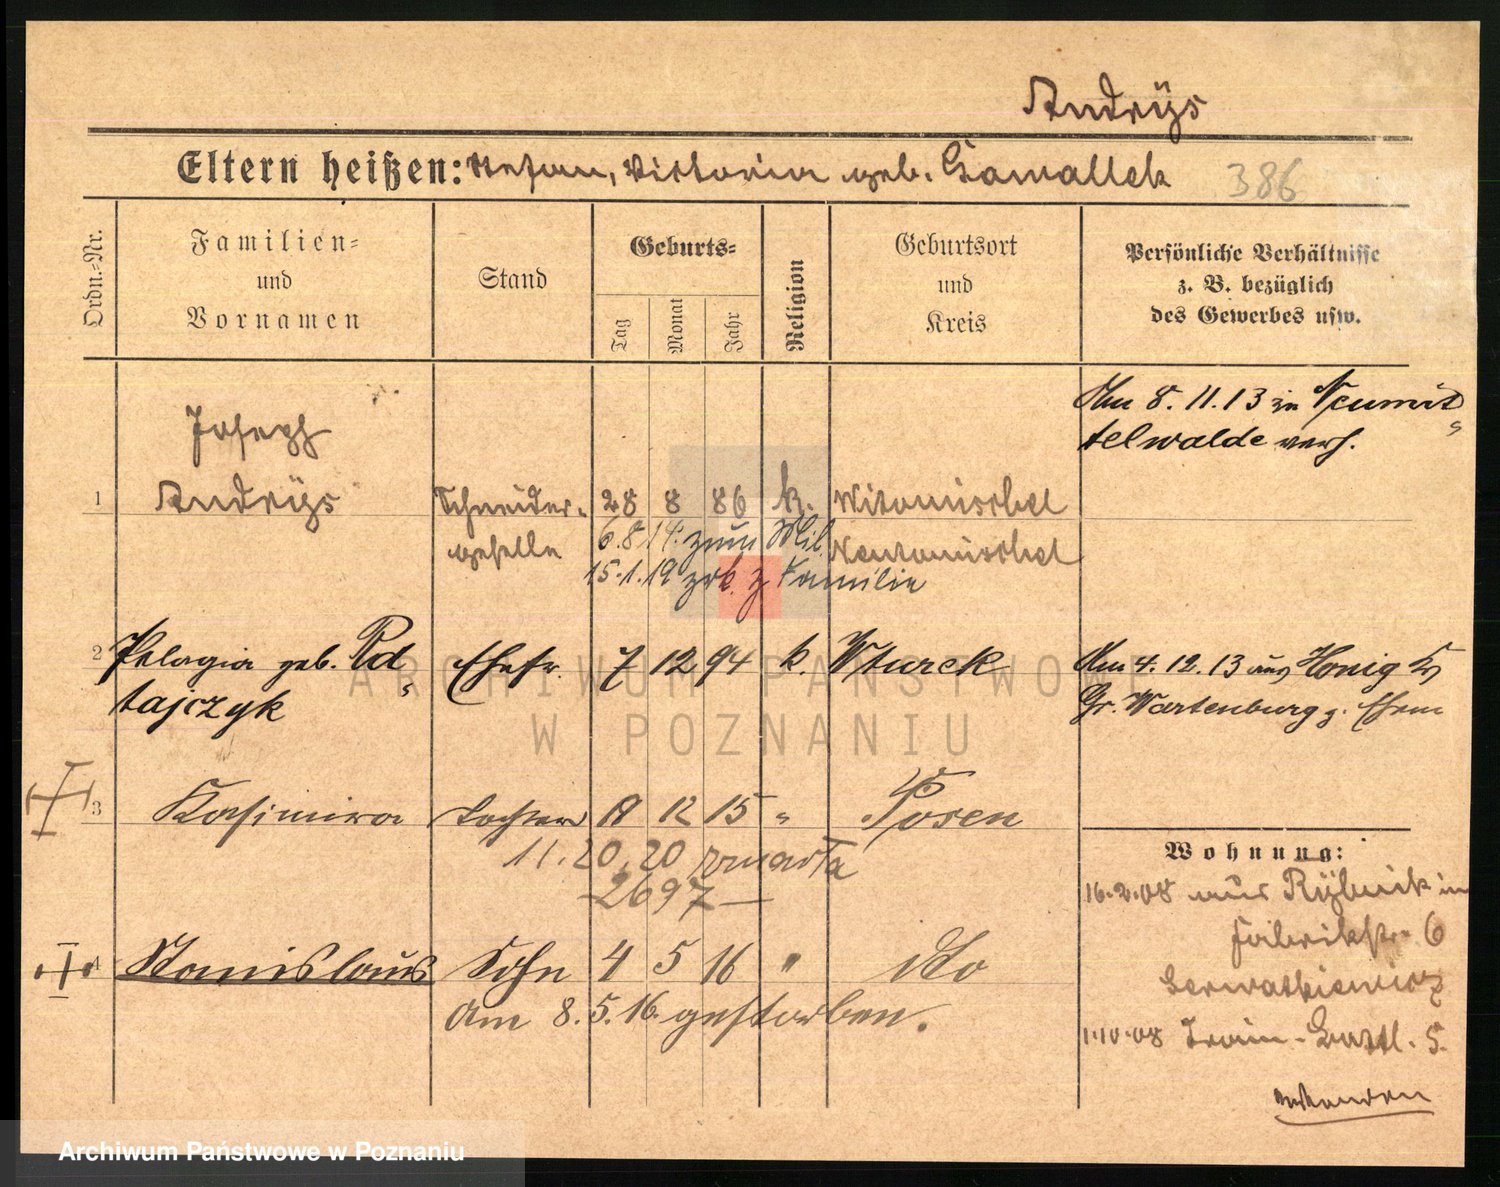 Andrÿs
Eltern heißen: Stefan, Victoria geb. Gawallek
386
Ordn.-Nr.
Familien-
und
Vornamen
Stand
Geburts-
Tag
Monat
Jahr
Religion
Geburtsort
und
Kreis
Persönliche Verhältnisse
z. B. bezüglich
des Gewerbes usw.
Am 8. 11. 13 in Neumit
telwalde verh.
Joseph
1 Andrÿs Schneider- 28 8 86 k. Witomischel
geselle 6.8.14. zum Mil. Neutomischel
15.1.19 zrk. z. Familie
2 Pelagia geb. Pd Ehefr. 7 12 94 k. Wturek Am 4. 12. 13 aus Honig Ks
tajczyk Gr. Wartenburg z. Ehem
3 Kasimira Tochter 12 15 " Posen
11.20.20 zmarła
2697
Wohnung:
16.2.08 aus Rÿbnik in
Fabrikstr. 6
4 Stanislaus Sohn 4 5 16 " dto
Am 8. 5. 16. gestorben.
1.10.08 Train-Batl. 5.
ARCHIWUM PAŃSTWOWE
W POZNANIU
Archiwum Państwowe w Poznaniu